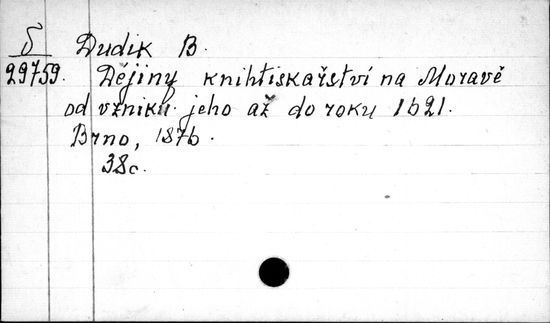 δ
29759.
Dudik B.
Dějiny knihtiskařství na Moravě
od vzniku jeho až do roku 1621.
Brno, 1876.
38c.